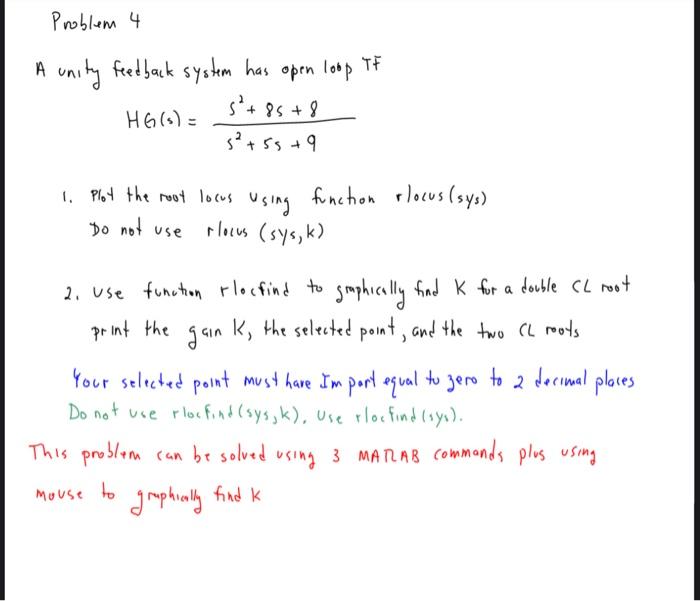 Problem 4
A unity feedback system has open loop TF
HG(s) = s² + 8s + 8 / s² + 5s + 9
1. Plot the root locus using function rlocus(sys)
Do not use rlocus (sys,k)
2. Use function rlocfind to graphically find K for a double CL root
print the gain K, the selected point, and the two CL roots
Your selected point must have Im part equal to zero to 2 decimal places
Do not use rlocfind(sys,k), Use rlocfind(sys).
This problem can be solved using 3 MATLAB commands plus using
mouse to graphically find K